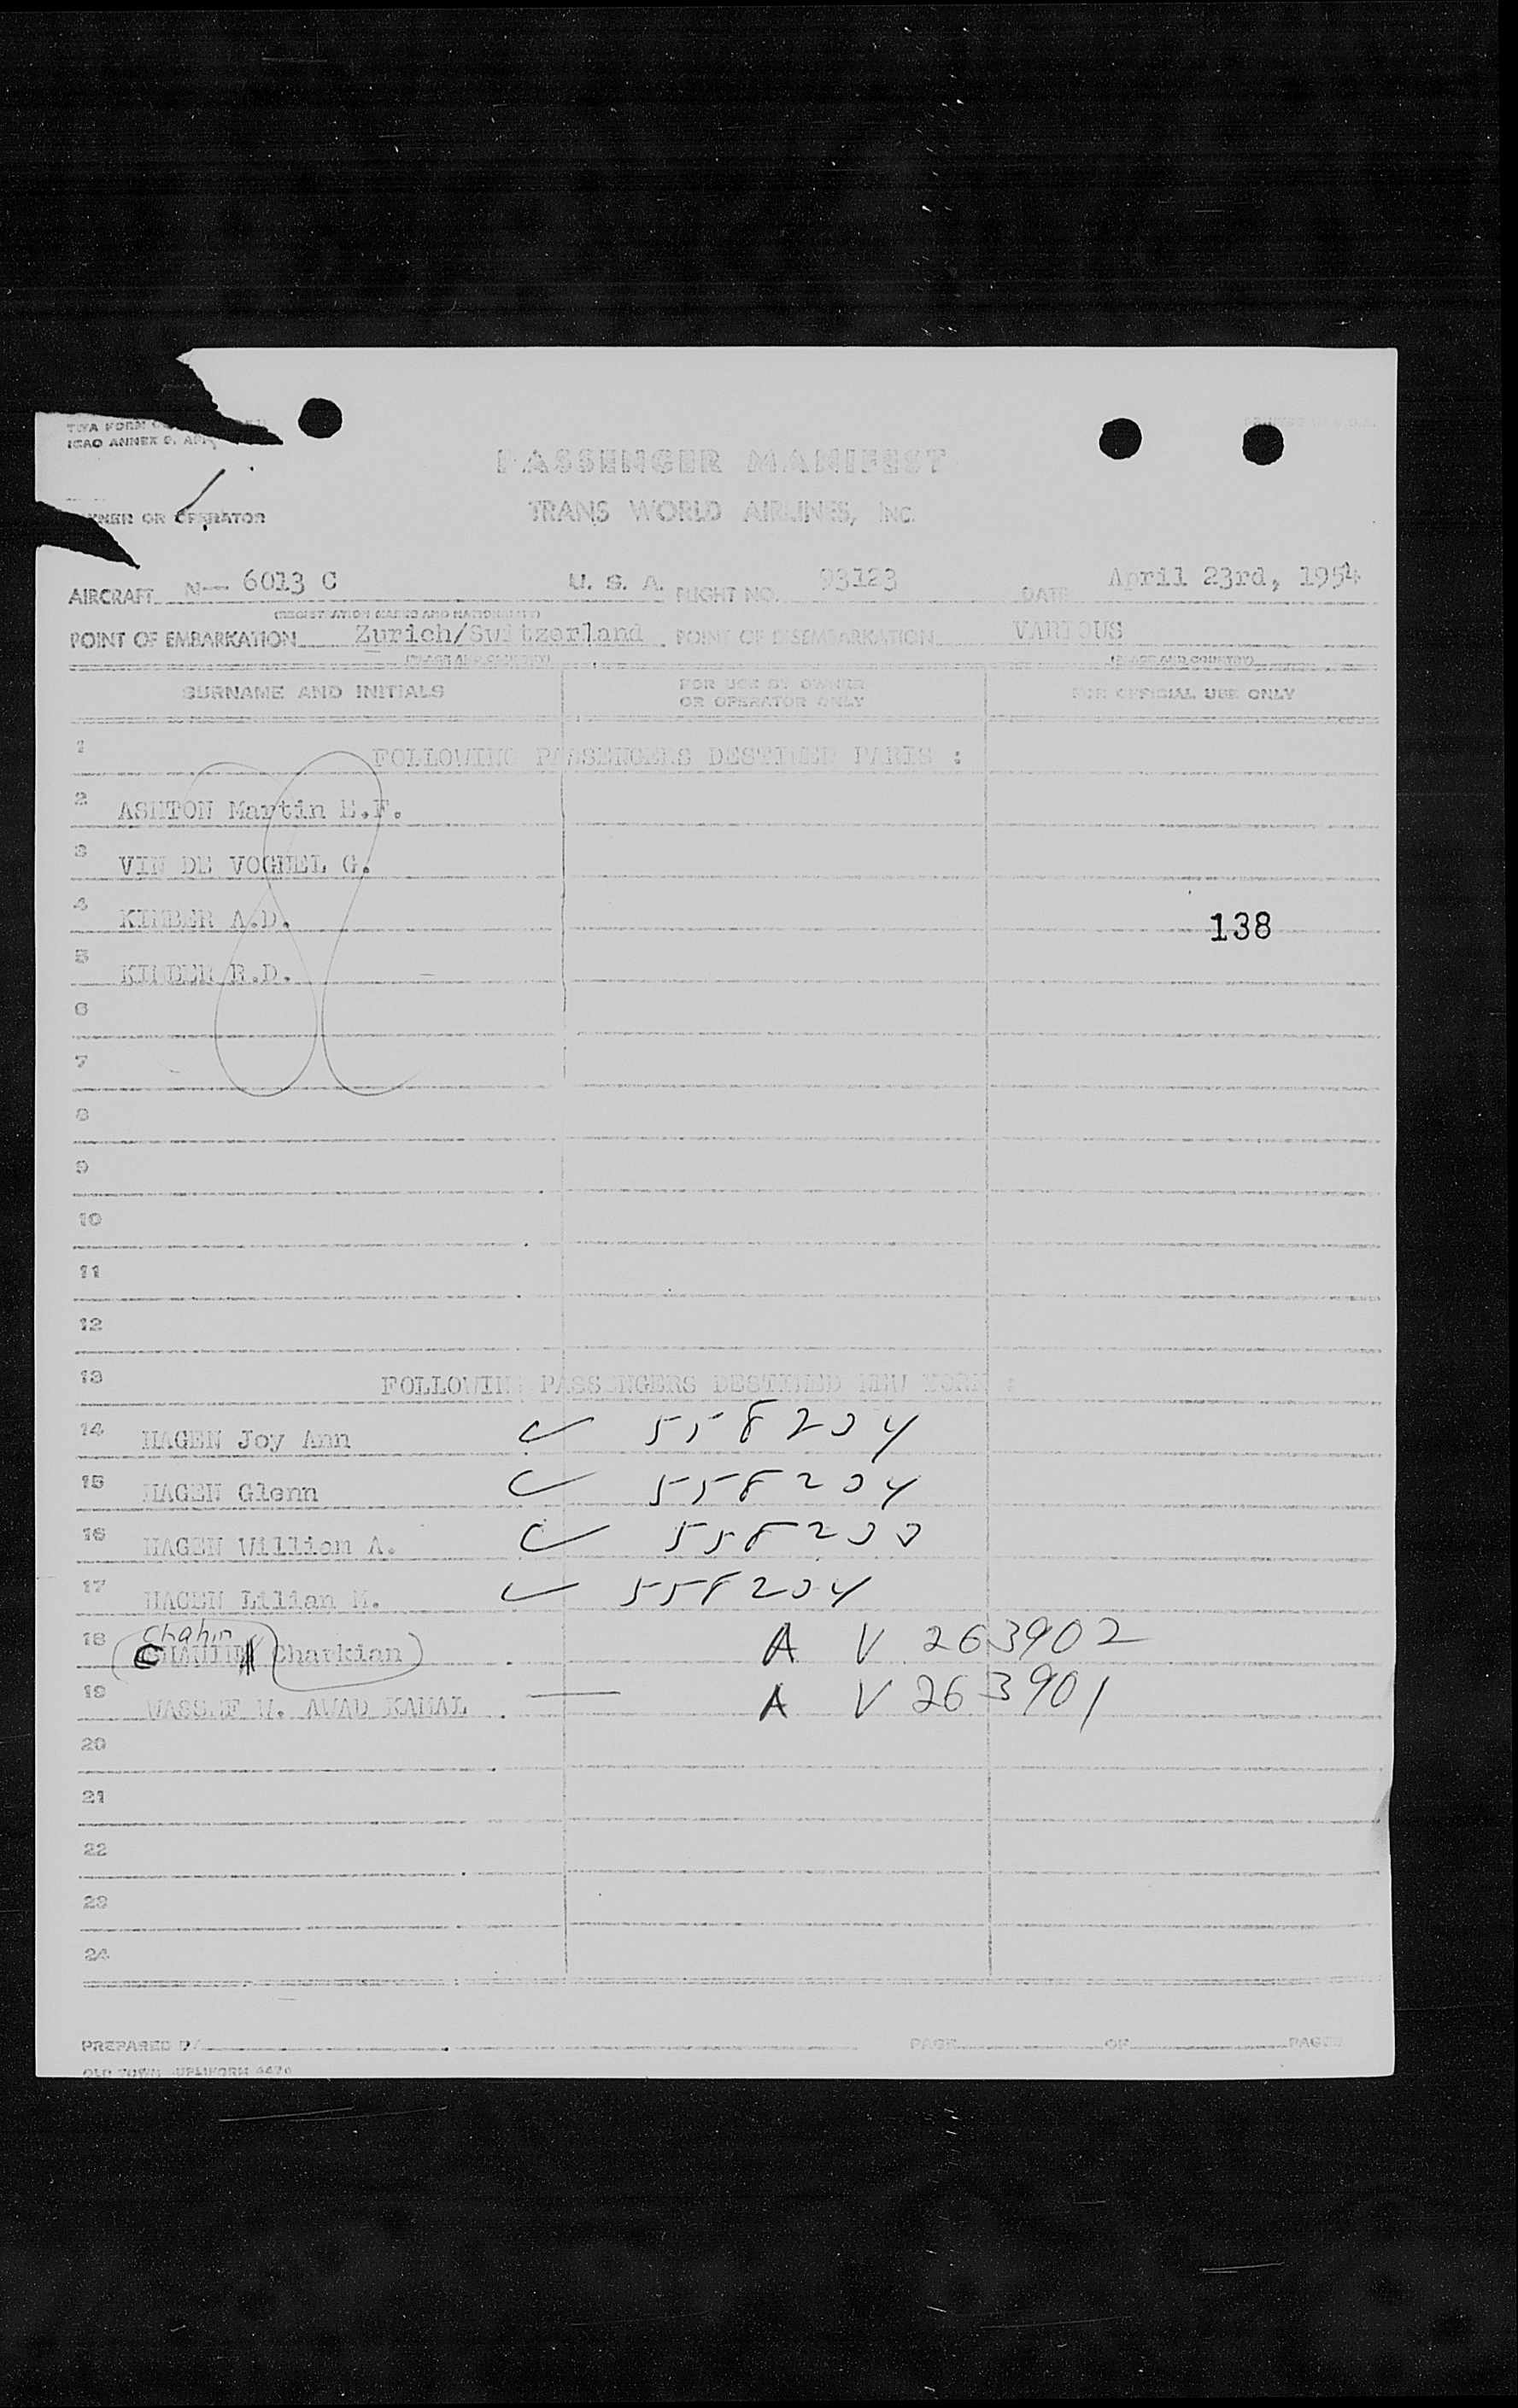 TWA FORM
ICAO ANNEX 9, AP
OWNER OR OPERATOR
PRINTED IN U.S.A.
PASSENGER MANIFEST
TRANS WORLD AIRLINES, INC.
AIRCRAFT N— 6013 C U. S. A. FLIGHT NO. 93123 DATE April 23rd, 1954
(REGISTRATION MARKS AND NATIONALITY)
POINT OF EMBARKATION Zurich/Switzerland POINT OF DISEMBARKATION VARIOUS
(PLACE AND COUNTRY) (PLACE AND COUNTRY)
SURNAME AND INITIALS FOR USE BY OWNER OR OPERATOR ONLY FOR OFFICIAL USE ONLY
1 FOLLOWING PASSENGERS DESTINED PARIS :
2 ASHTON Martin E.F.
3 VIN DE VOGHEL G.
4 KIMBER A.D. 138
5 KIMBER R.D.
6
7
8
9
10
11
12
13 FOLLOWING PASSENGERS DESTINED NEW YORK :
14 HAGEN Joy Ann ✓ 558204
15 HAGEN Glenn ✓ 558204
16 HAGEN William A. ✓ 558200
17 HAGEN Lilian M. ✓ 558204
Chahin
18 Charkian A V 263902
19 WASSEF W. AWAD KAMAL — A V 263901
20
21
22
23
24
PREPARED BY PAGE OF PAGES
OLD TOWN DUPLIFORM